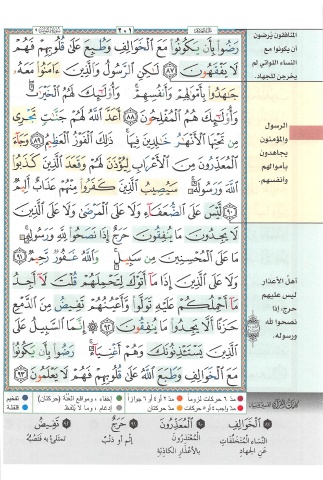 رَضُوا۟ بِأَن يَكُونُوا۟ مَعَ ٱلْخَوَالِفِ وَطُبِعَ عَلَىٰ قُلُوبِهِمْ فَهُمْ
لَا يَفْقَهُونَ ٨٧ لَٰكِنِ ٱلرَّسُولُ وَٱلَّذِينَ ءَامَنُوا۟ مَعَهُۥ
جَٰهَدُوا۟ بِأَمْوَٰلِهِمْ وَأَنفُسِهِمْ ۚ وَأُو۟لَٰٓئِكَ لَهُمُ ٱلْخَيْرَٰتُ ۖ
وَأُو۟لَٰٓئِكَ هُمُ ٱلْمُفْلِحُونَ ٨٨ أَعَدَّ ٱللَّهُ لَهُمْ جَنَّٰتٍ تَجْرِى
مِن تَحْتِهَا ٱلْأَنْهَٰرُ خَٰلِدِينَ فِيهَا ۚ ذَٰلِكَ ٱلْفَوْزُ ٱلْعَظِيمُ ٨٩ وَجَآءَ
ٱلْمُعَذِّرُونَ مِنَ ٱلْأَعْرَابِ لِيُؤْذَنَ لَهُمْ وَقَعَدَ ٱلَّذِينَ كَذَبُوا۟
ٱللَّهَ وَرَسُولَهُۥ ۚ سَيُصِيبُ ٱلَّذِينَ كَفَرُوا۟ مِنْهُمْ عَذَابٌ أَلِيمٌ
٩٠ لَّيْسَ عَلَى ٱلضُّعَفَآءِ وَلَا عَلَى ٱلْمَرْضَىٰ وَلَا عَلَى ٱلَّذِينَ
لَا يَجِدُونَ مَا يُنفِقُونَ حَرَجٌ إِذَا نَصَحُوا۟ لِلَّهِ وَرَسُولِهِۦ ۚ
مَا عَلَى ٱلْمُحْسِنِينَ مِن سَبِيلٍ ۚ وَٱللَّهُ غَفُورٌ رَّحِيمٌ ٩١
وَلَا عَلَى ٱلَّذِينَ إِذَا مَآ أَتَوْكَ لِتَحْمِلَهُمْ قُلْتَ لَآ أَجِدُ
مَآ أَحْمِلُكُمْ عَلَيْهِ تَوَلَّوا۟ وَّأَعْيُنُهُمْ تَفِيضُ مِنَ ٱلدَّمْعِ
حَزَنًا أَلَّا يَجِدُوا۟ مَا يُنفِقُونَ ٩٢ إِنَّمَا ٱلسَّبِيلُ عَلَى
ٱلَّذِينَ يَسْتَـْٔذِنُونَكَ وَهُمْ أَغْنِيَآءُ ۚ رَضُوا۟ بِأَن يَكُونُوا۟
مَعَ ٱلْخَوَالِفِ وَطَبَعَ ٱللَّهُ عَلَىٰ قُلُوبِهِمْ فَهُمْ لَا يَعْلَمُونَ ٩٣
المنافقون يَرضون
أن يكونوا مع
النساء اللواتي لم
يخرجن للجهاد.
الرسول
والمؤمنون
يجاهدون
بأموالهم
وأنفسهم.
أهل الأعذار
ليس عليهم
حرج، إذا
نصحوا لله
ورسوله.
مدّ ٦ حركات لزوماً
مدّ ٢ أو ٤ أو ٦ جوازاً
إخفاء، ومواقع الغُنَّة (حركتان)
تفخيم
مدّ واجب ٤ أو ٥ حركات
مدّ حركتان
إدغام، وما لا يُلفظ
قلقلة
الْخَوَالِفِ
النساء المتخلفات
عن الجهاد
الْمُعَذِّرُونَ
المعتذرون
بالأعذار الكاذبة
حَرَجٌ
إثم أو ذنب
تَفِيضُ
تمتلئ به فتصبّه